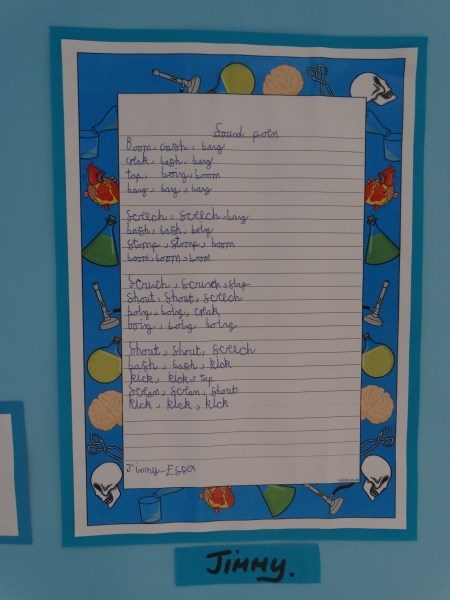 Sound poem
Boom, crash, bang
crak, bash, bang
tap, boing, boom
bang, bang, bang
Screech, Screech, bang
bash, bash, boing
Stomp, Stomp, boom
boom, boom, boom
Scrunch, Scrunch, slap
Shout, Shout, Screech
boing, boing, crak
boing, boing, boing
Shout, Shout, Screech
bash, bash, kick
kick, kick, tap
Scream, Scream, Shout
kick, kick, kick
Jimmy-Essex
JIMMY.